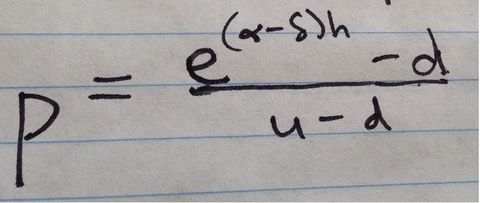 p = \frac{e^{(α-δ)h} - d}{u - d}